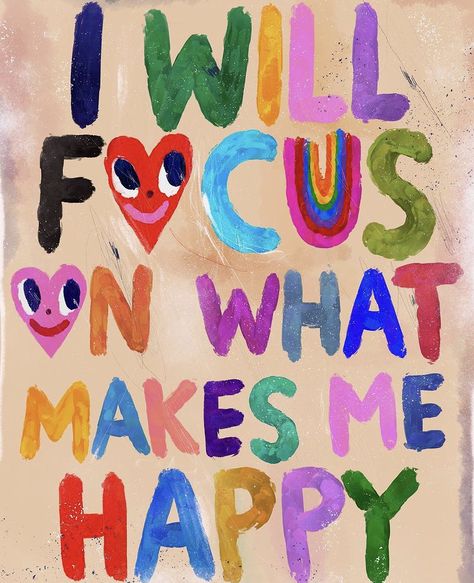 I WILL
FOCUS
ON WHAT
MAKES ME
HAPPY